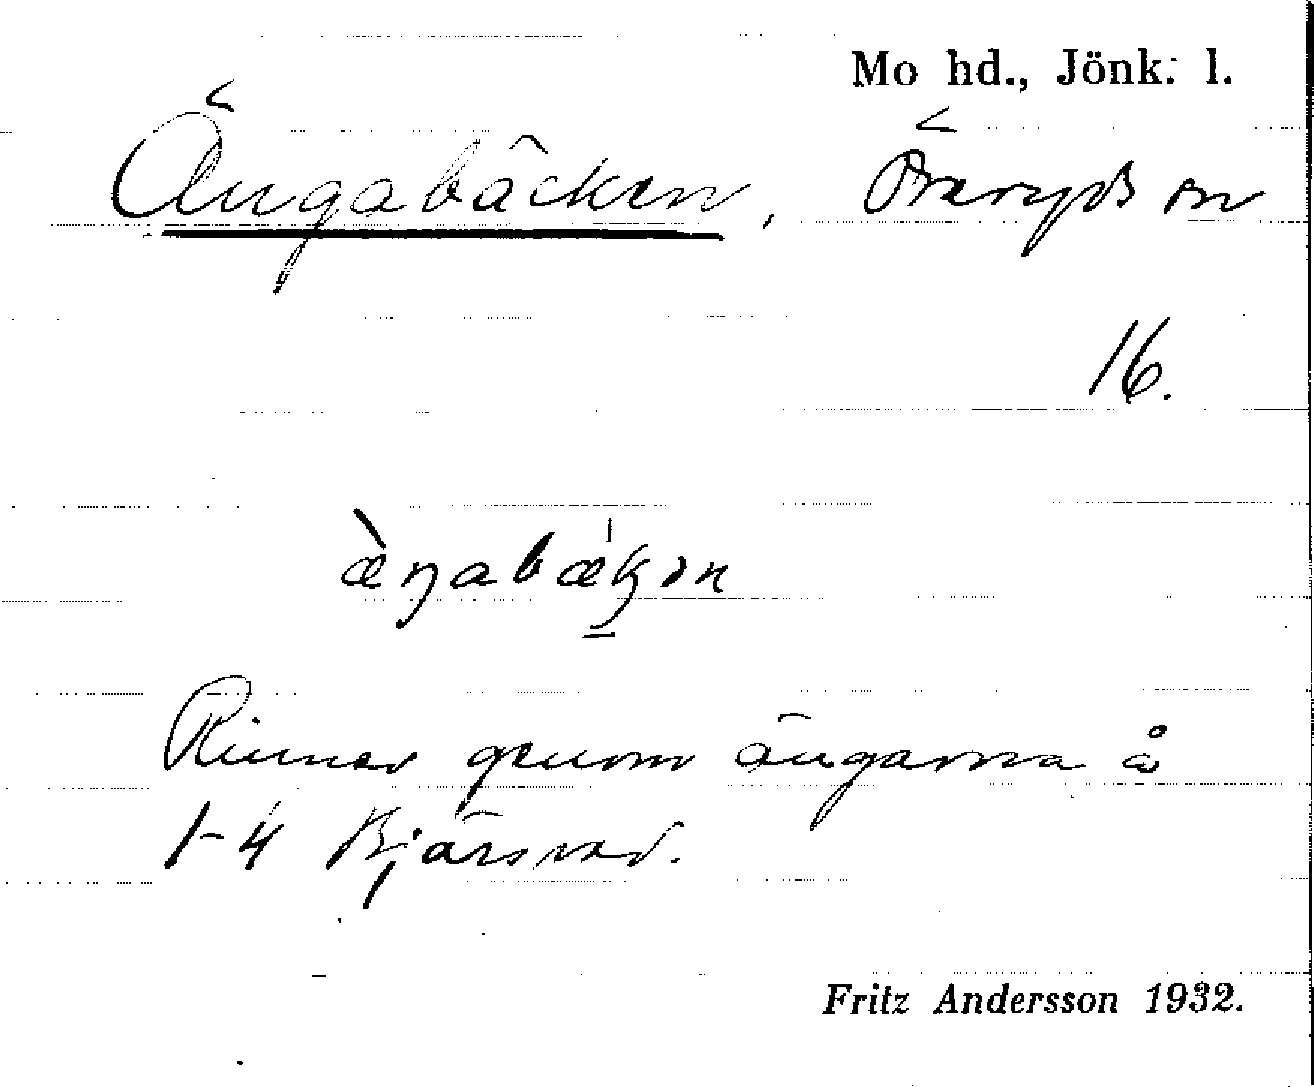 Mo hd., Jönk. l.
Ängabäcken, Öreryds sn
16.
æ̀ŋabæ̍kən
Rinner genom ängarna å
1-4 Bjärsved.
Fritz Andersson 1932.